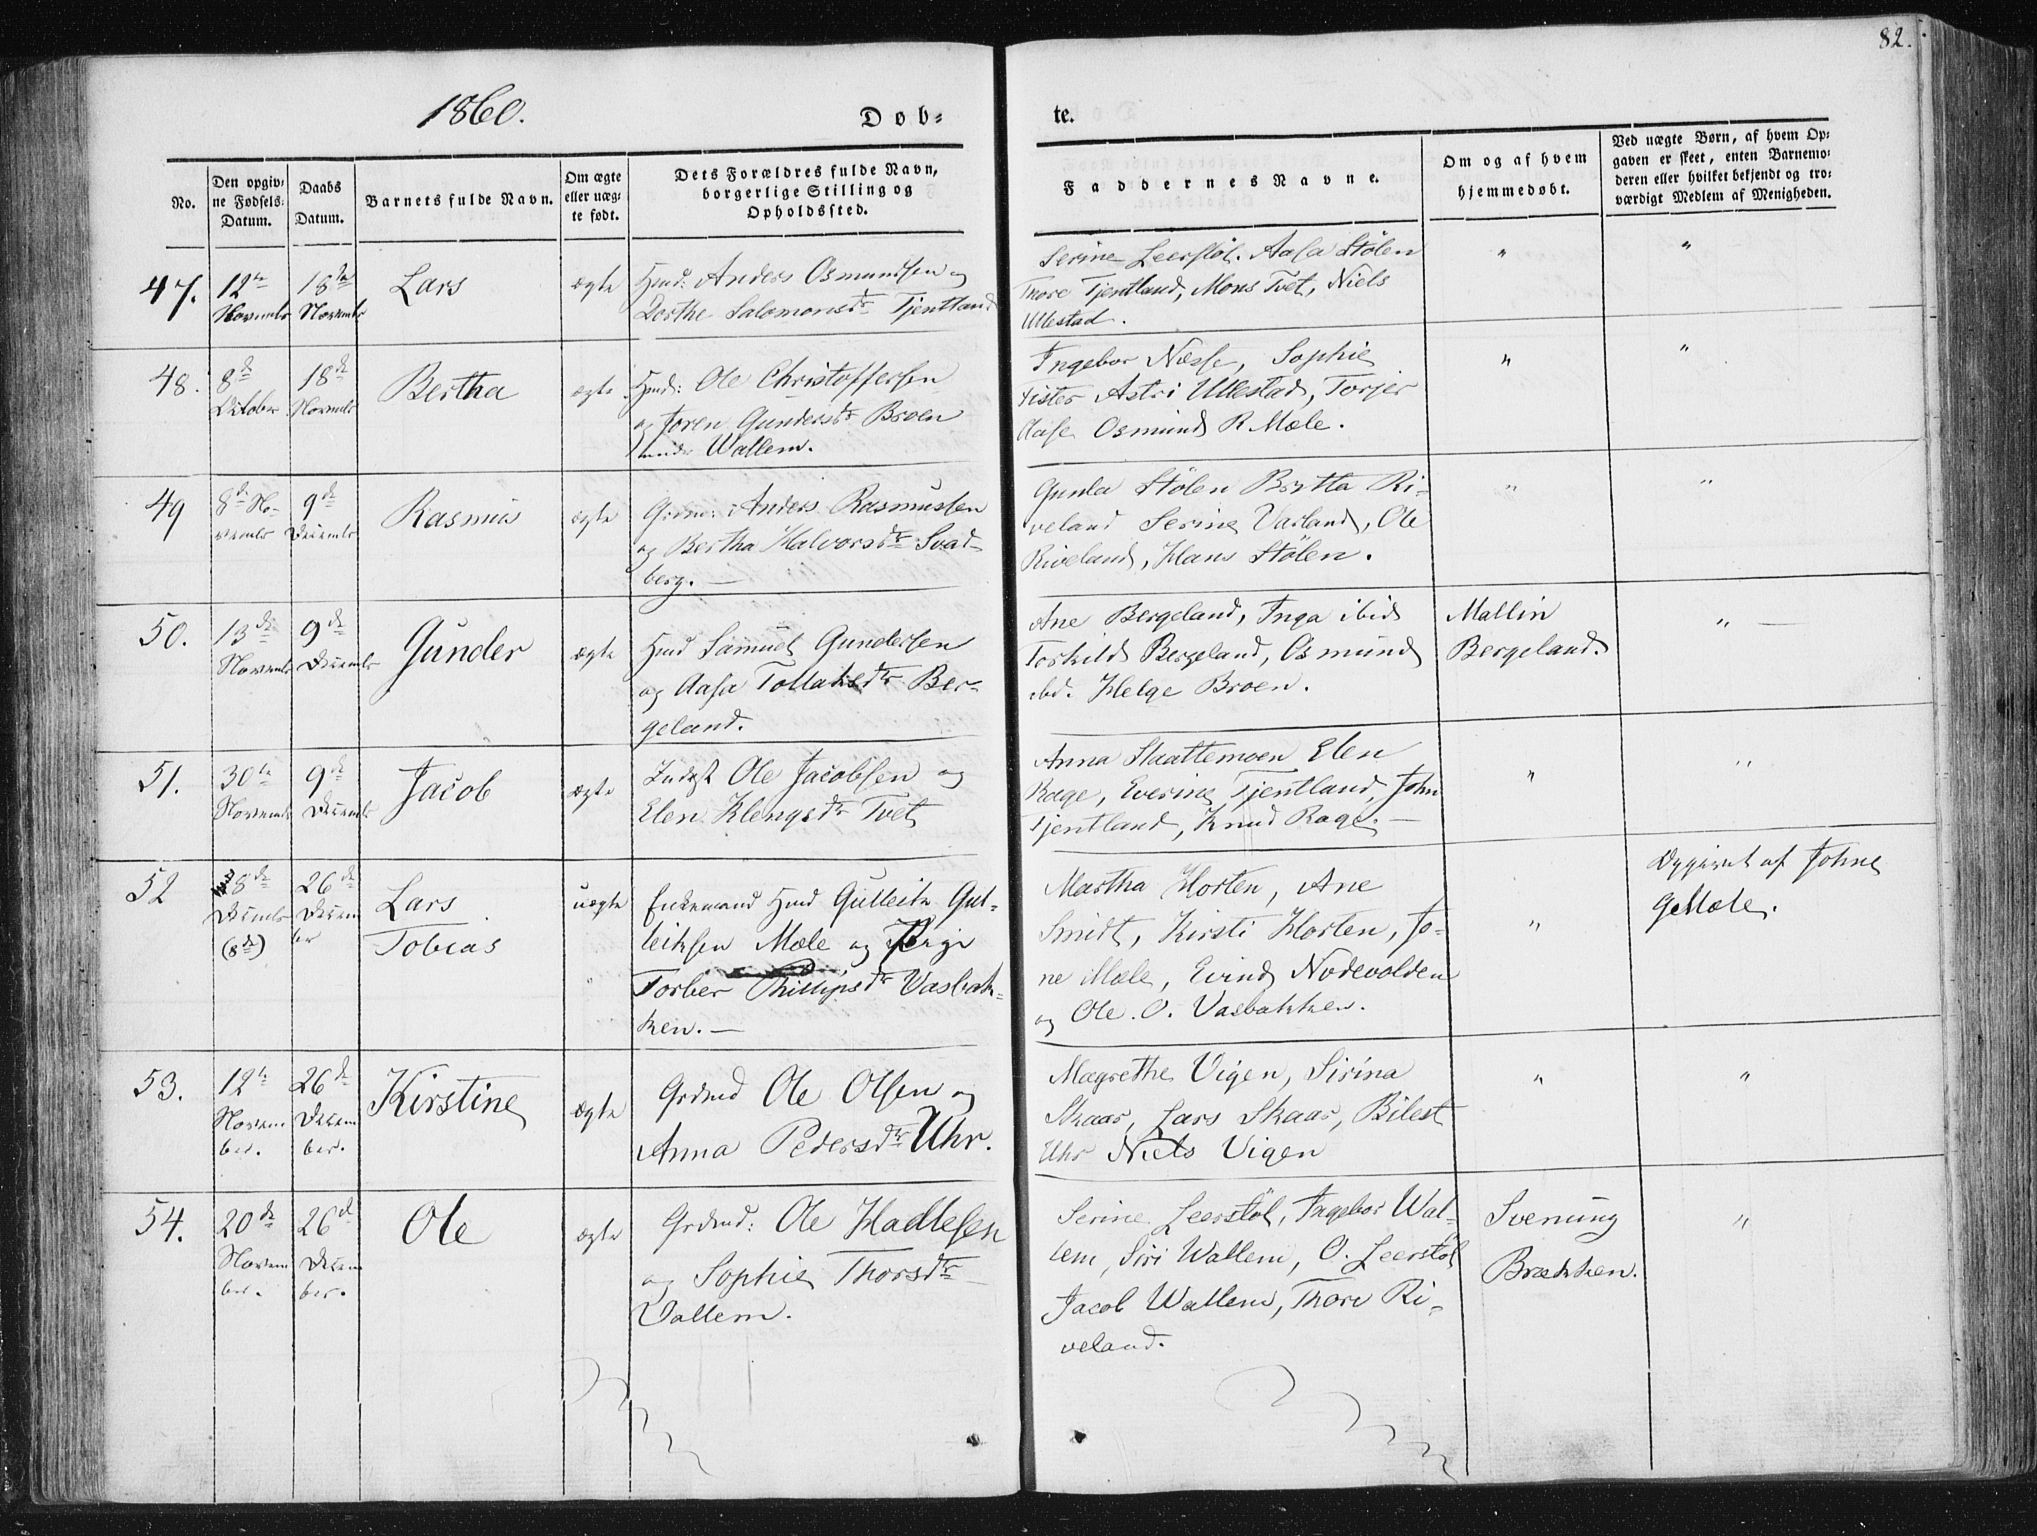 82.
1860.
Dob=
te.
No.
Den opgiv=
ne Fødsels=
Datum.
Daabs
Datum.
Barnets fulde Navn.
Om ægte
eller uæg=
te født.
Dets Forældres fulde Navn,
borgerlige Stilling og
Opholdssted.
Faddernes Navne.
Om og af hvem
hjemmedøbt.
Ved uægte Børn, af hvem Op=
gaven er skeet, enten Barnemo=
deren eller hvilket bekjendt og tro=
værdigt Medlem af Menigheden.
47.
12te
Novembr
18de
Novembr
Lars
ægte
Hmd: Anders Osmundsen og
Dorthe Salomonsdtr Tjentland
Serine Leerstøl. Aasa Stølen
Thore Tjentland, Mons Tvet, Niels
Ullestad.
"
"
48.
8de
October
18de
Novembr
Bertha
ægte
Hmd: Ole Christoffersen
og Joren Gundersdtr Broen
under Wallem.
Ingebor Næsse, Sophie
Astri Ullestad, Torjer
Osmund R. Mæle.
"
"
49
8de No-
vembr
9de
Decembr
Rasmus
ægte
Grdm: Anders Rasmussen
og Bertha Halvorsdtr Svad-
berg. —
Gunla Stølen Brytta Ri-
veland Serine Varland, Ole
Riveland, Hans Stølen.
"
"
50.
13de
Novembr
9de
Decembr
Gunder
ægte
Hmd Samuel Gundersen
og Aasa Tollaksdtr Ber-
geland.
Ane Bergeland, Inga ibid
Torkild Bergeland, Osmund
ibd. Helge Broen.
Mallin
Bergeland.
" —
51.
30te
Novembr
9de
Decembr
Jacob
ægte
Indst Ole Jacobsen og
Elen Klengsdtr Tvet
Anna Slaattemoen Elen
Rage, Everine Tjentland, John
Tjentland, Knud Rage. —
"
"
52
8de
Decembr
(8de)
26de
Decem
ber
Lars
Tobias
uægte
Enkemand Hmd Gulleik Gul-
leiksen Mæle og Pige
Torber Phillipsdtr Vasbak-
ken. —
"
Martha Horten, Ane
Smidt, Kirsti Horten, Jo-
ne Mæle, Evind Nodevolden
og Ole. O. Vasbakken.
"
Opgivet af Johne
G Mæle.
53.
12te
Novem
ber.
26de
Decem
ber.
Kirstine
ægte
Grdmd Ole Olsen og
Anna Pedersdtr Uhr.
Magrethe Vigen, Sirina
Skaar, Lars Skaar, Bilest
Uhr Niels Vigen
"
"
54.
20de
Novem
ber.
26de
Decem
ber.
Ole
ægte
Grdmd: Ole Hadlesen
og Sophie Thorsdtr
Vallem.
Serine Leerstøl, Ingebor Wal-
lem, Siri Wallem, O. Leerstøl
Jacob Wallem, Thore Ri-
veland.
Svenung
Brækken.
"